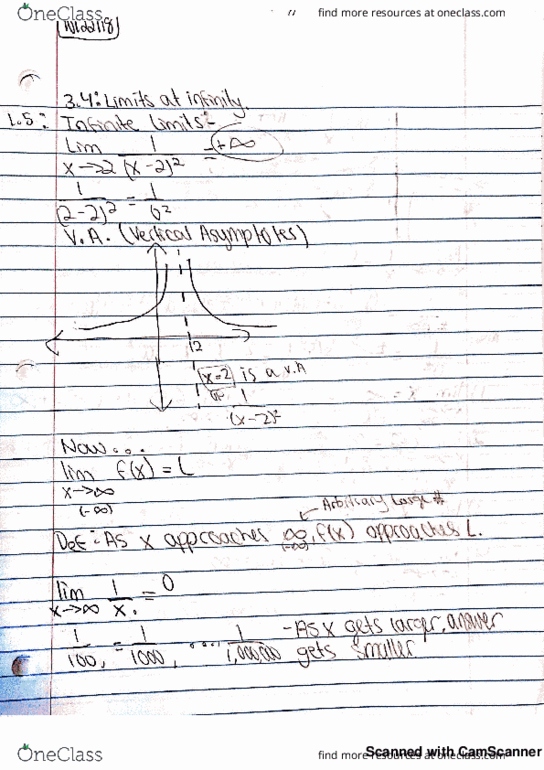 OneClass
find more resources at oneclass.com
10/22/18
3.4: Limits at infinity.
1.5: Infinite Limits:
Lim 1 = +∞
x→2 (x-2)²
1 = 1
(2-2)² 0²
V.A. (Vertical Asymptotes)
2
x=2 is a V.A
of 1
(x-2)²
Now...
lim f(x) = L
x→∞
(-∞)
Arbitrary Large #
Def: As x approaches ∞, f(x) approaches L.
(-∞)
lim 1 = 0
x→∞ x
1 , = 1 , .... 1 - As x gets larger, answer
100 1000 1,000,000 gets smaller
OneClass
find more resources at oneclass.com
Scanned with CamScanner